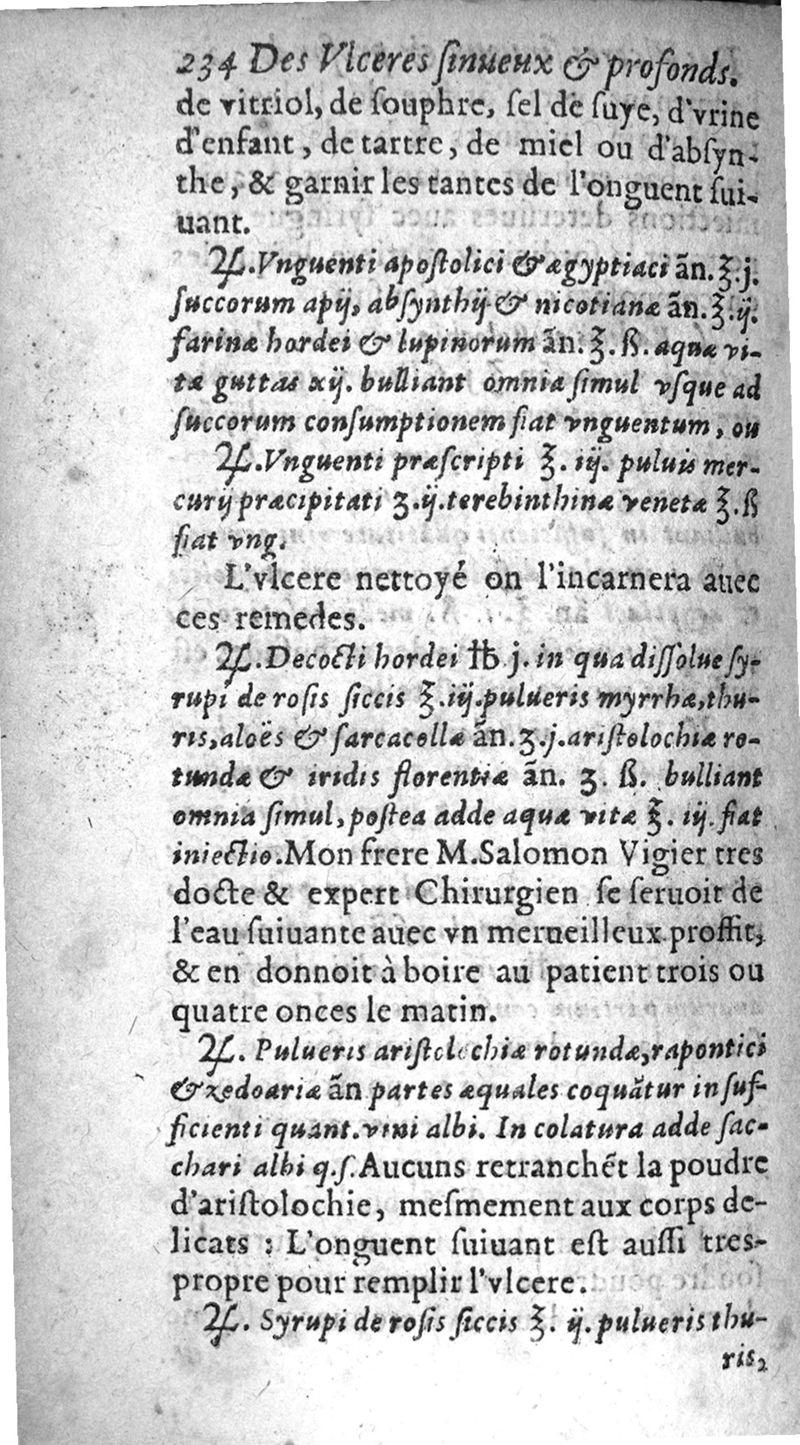 234 Des Vlceres ſinueux & profonds.
de vitriol, de ſouphre, ſel de ſuye, d'vrine
d'enfant, de tartre, de miel ou d'abſyn-
the, & garnir les tantes de l'onguent ſui-
uant.
♃. Vnguenti apoſtolici & ægyptiaci ãn. ℥. j.
ſuccorum apij, abſynthij & nicotianæ ãn. ℥. ij.
farinæ hordei & lupinorum ãn. ℥. ß. aquæ vi-
tæ guttas xij. bulliant omnia ſimul vſque ad
ſuccorum conſumptionem fiat vnguentum, ou
♃. Vnguenti præſcripti ℥. iij. puluis mer-
curij præcipitati ʒ. ij. terebinthinæ venetæ ℥. ß
fiat vng.
L'vlcere nettoyé on l'incarnera auec
ces remedes.
♃. Decocti hordei ℔ j. in qua diſſolue ſy-
rupi de roſis ſiccis ℥. iij. pulueris myrrhæ, thu-
ris, aloës & ſarcacollæ ãn. ʒ. j. ariſtolochiæ ro-
tundæ & iridis florentiæ ãn. ʒ. ß. bulliant
omnia ſimul, poſtea adde aquæ vitæ ℥. iij. fiat
iniectio. Mon frere M. Salomon Vigier tres
docte & expert Chirurgien ſe ſeruoit de
l'eau ſuiuante auec vn merueilleux proffit,
& en donnoit à boire au patient trois ou
quatre onces le matin.
♃. Pulueris ariſtolochiæ rotundæ, rapontici
& zedoariæ ãn partes æquales coquãtur in ſuf-
ficienti quant. vini albi. In colatura adde ſac-
chari albi q. ſ. Aucuns retranchẽt la poudre
d'ariſtolochie, meſmement aux corps de-
licats : L'onguent ſuiuant eſt auſſi tres-
propre pour remplir l'vlcere.
♃. Syrupi de roſis ſiccis ℥. ij. pulueris thu-
ris,